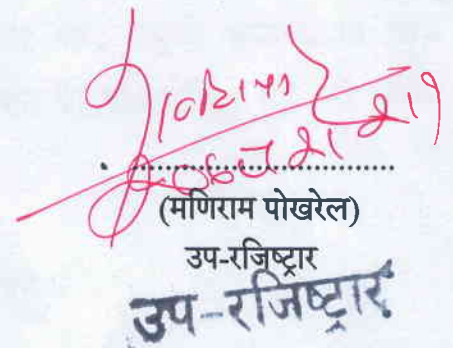 (मणिराम पोखरेल)
उप-रजिष्ट्रार
उप-रजिष्ट्रार